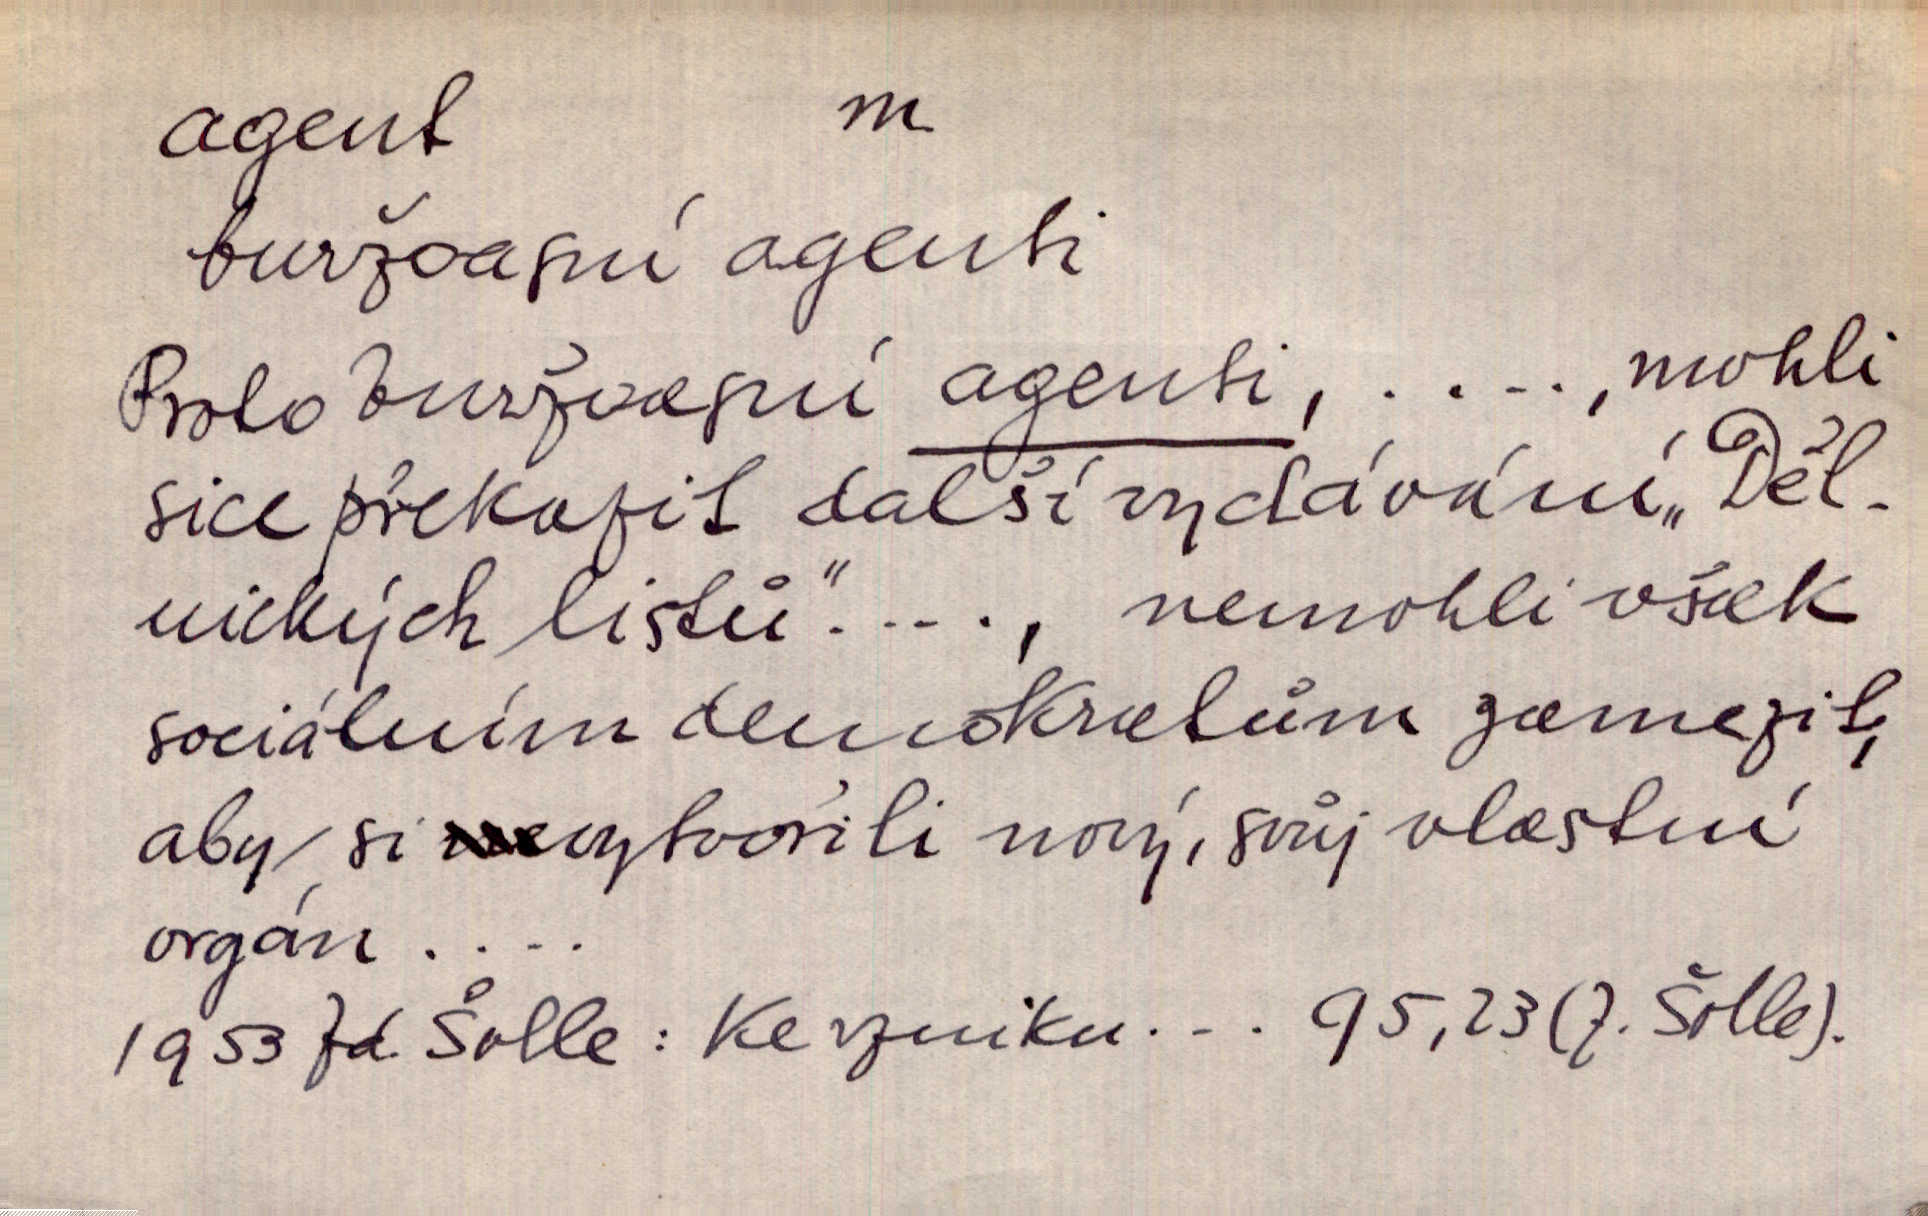 agent m
buržoasní agenti
Proto buržoasní agenti, ....., mohli
sice překazit další vydávání „Děl-
nických listů" ....., nemohli však
sociálním demokratům zamezit,
aby si vytvořili nový, svůj vlastní
orgán ....
1953 Zd. Šolle: Ke vzniku ... 95,23 (Z. Šolle).